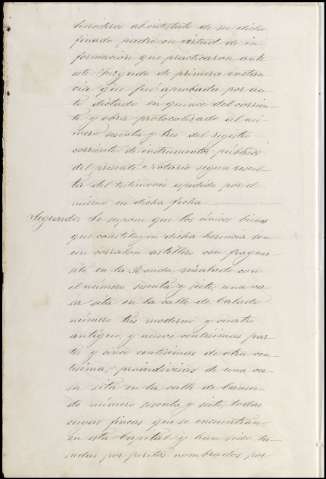 heredera abintestato de su dicho
finado padre en virtud de in-
formacion que practicaron ante
este Juzgado de primera instan
cia que fué aprobada por au-
to dictado en quince del corrien
te y obra protocolizado al nú-
mero sesenta y tres del registro
corriente de instrumentos públicos
del presente Notario segun resul
ta del testimonio espedido por el
mismo en dicha fecha
Segundo: Se espone que los únicos bienes
que constituyen dicha herencia son
un corralon astillero con fragua
sito en la Ronda señalado con
el número sesenta y siete, una ca-
sa sita en la calle de
número tres moderno y cuatro
antiguo, y nueve centésimas par-
te y cinco centésimas de otra cen-
tésima, proindivisas de una ca-
sa sita en la calle de
de número sesenta y siete, todas
cuyas fincas que se encuentran
en esta Capital y han sido ta-
sadas por peritos nombrados por